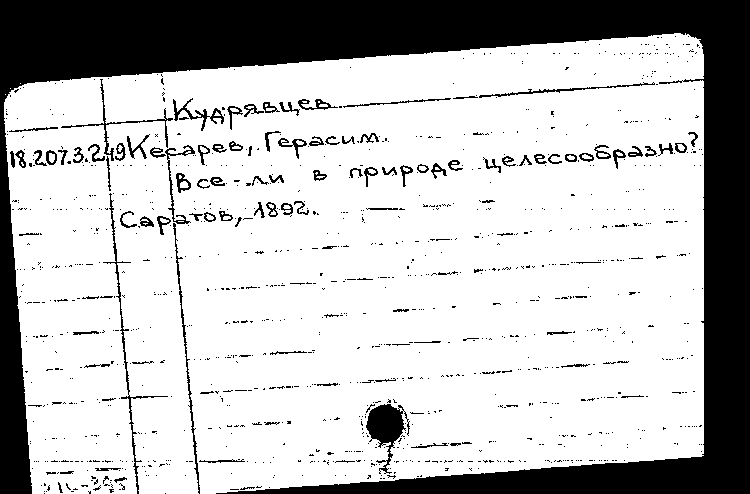 Кудрявцев
18.207.3.249 Кесарев, Герасим.
Все-ли в природе целесообразно?
Саратов, 1892.